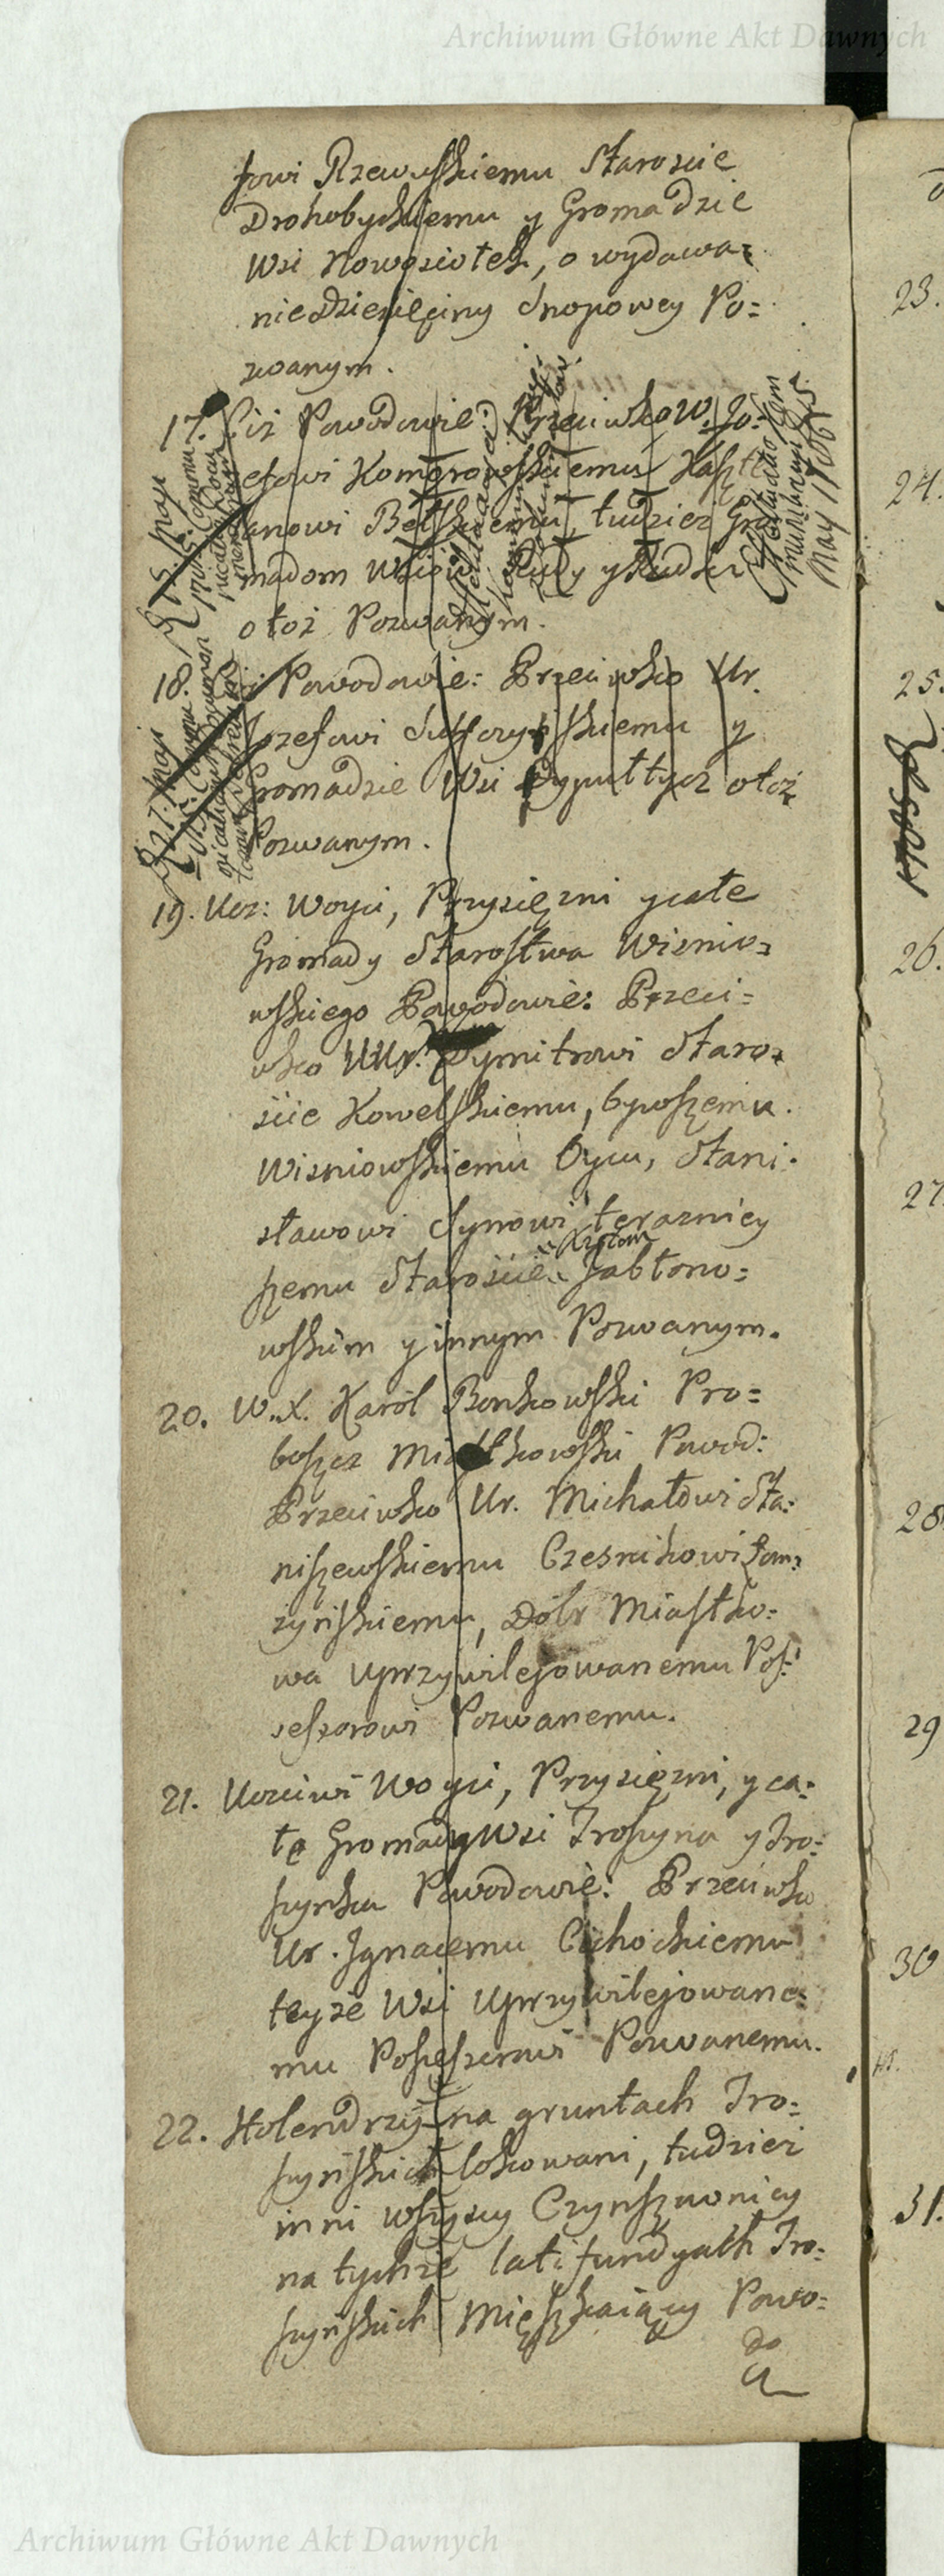 Archiwum Główne Akt Dawnych
fowi Rzewuskiemu Staroscie
Drohobyckiemu y Gromadzie
Wsi Nowosiołek, o wydawa=
nie Dziesięciny Snopowey Po=
zwanym.
17. Ciż Powodowie: Przeciwko W. Jo=
zefowi Komorowskiemu Kaszt
lanowi Bełskiemu, tudziez Gro
madom Wsiow Rudy y Rudki
otoż Pozwanym.
18. Ciż Powodowie: Przeciwko Ur.
Jozefowi Suffczyńskiemu y
Gromadzie Wsi otoż
Pozwanym.
19. Ucz: Woyci, Przysięzni y całe
Gromady Starostwa Wiznio=
wskiego Powodowie: Przeci=
wko UUr. Dymitrowi Staro=
ście Kowelskiemu, bywszemu
Wisniowskiemu Oycu, Stani=
sławowi Synowi terazniey
szemu Staroście Jabłono=
wskim y innym Pozwanym.
20. W. X. Karol Bonkowski Pro=
boszcz Miastkowski Powod:
Przeciwko Ur. Michałowi Sta=
niszewskiemu Czesnikowi Łom=
żyńskiemu, Dobr Miastko=
wa uprzywilejowanemu Pos=
sessorowi Pozwanemu.
21. Ucciwi Woyci, Przysięzni, y ca=
łe Gromady Wsi Troszyna y Tro=
szynka Powodowie: Przeciwko
Ur. Jgnacemu Cichockiemu
teyże Wsi Uprzywilejowane=
mu Possessorowi Pozwanemu.
22. Holendrzy na gruntach Tro=
szyńskich lokowani, tudzież
inni wszyscy Czynszownicy
na tychże latifundyach Tro=
szyńskich Mięszkaiący Powo=
do
23.
24.
25.
26.
27
28
29
30
31.
Archiwum Główne Akt Dawnych